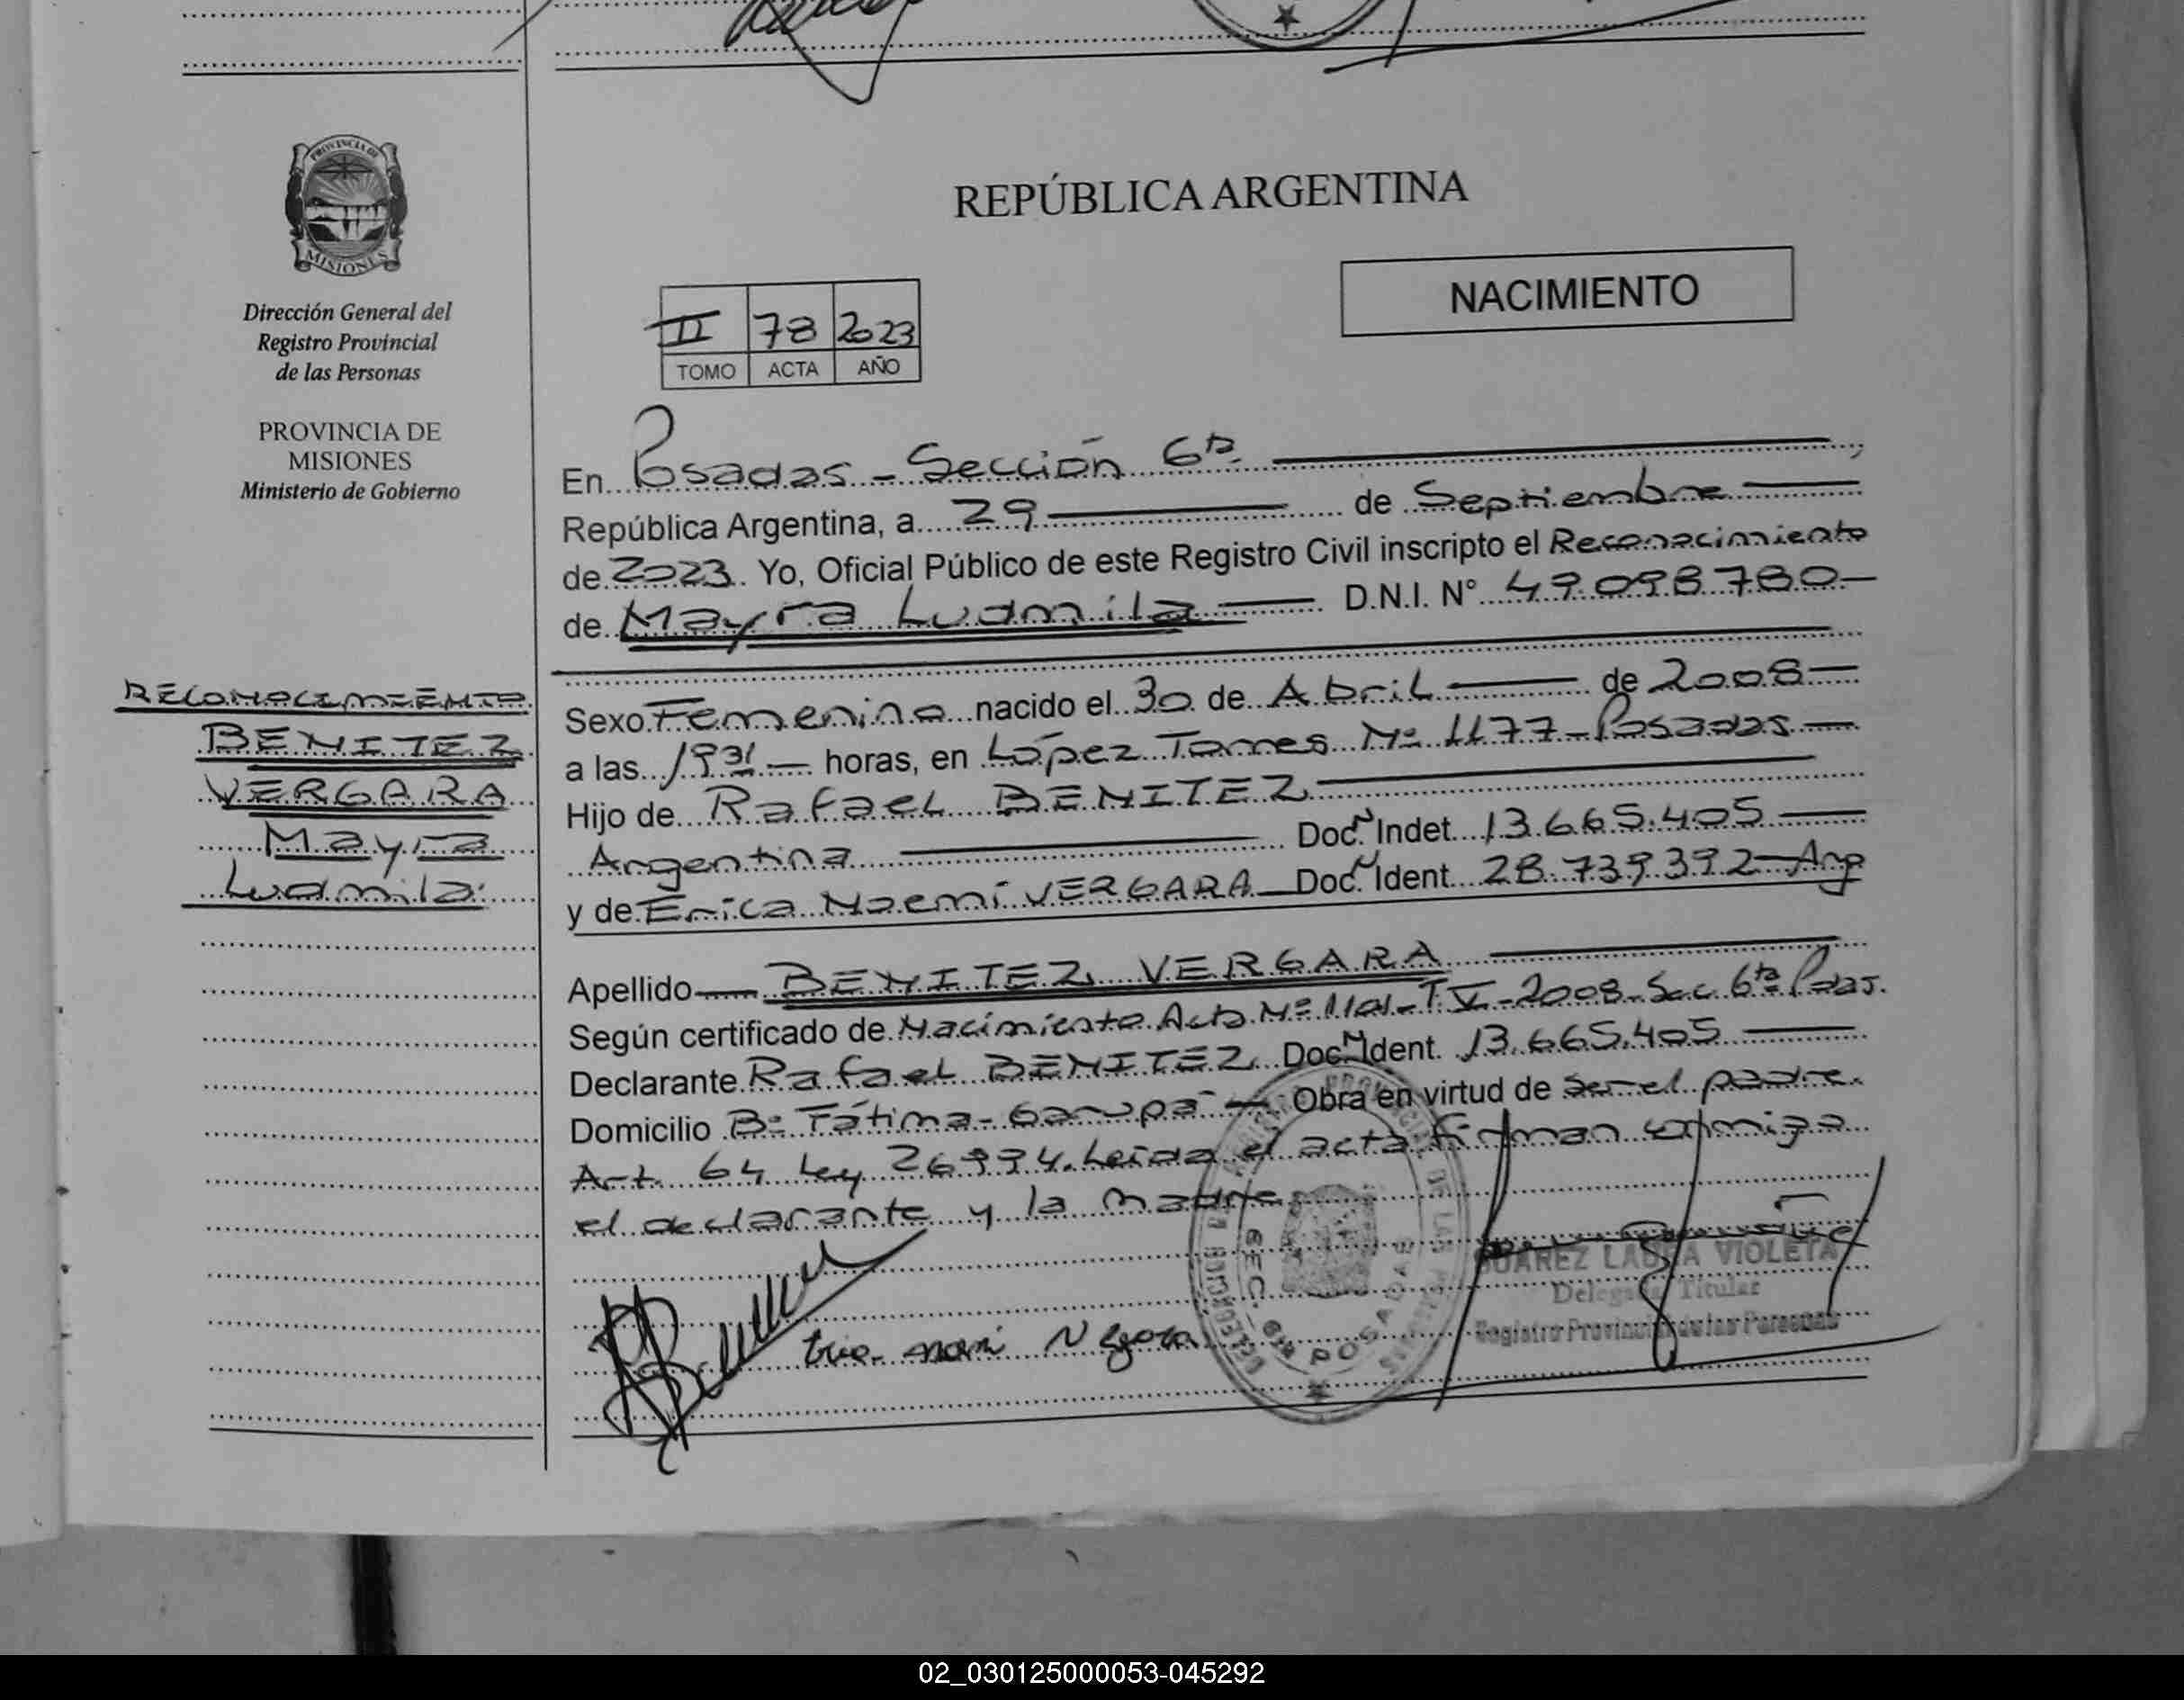 PROVINCIA DE
MISIONES
Dirección General del
Registro Provincial
de las Personas
PROVINCIA DE
MISIONES
Ministerio de Gobierno
RECONOCIMIENTO
BENITEZ
VERGARA
Mayra
Ludmila
REPÚBLICA ARGENTINA
NACIMIENTO
II 78 2023
TOMO ACTA AÑO
En Posadas - Sección 6ta
República Argentina, a 29 de Septiembre
de 2023. Yo, Oficial Público de este Registro Civil inscripto el Reconocimiento
de Mayra Ludmila D.N.I. N° 49.098.780
Sexo Femenino nacido el 30 de Abril de 2008
a las 19 31 horas, en López Torres Nº 1177 - Posadas
Hijo de Rafael BENITEZ
Argentina Doc. N Indet. 13.665.405
y de Erica Noemí VERGARA Doc. N Ident. 28.739.392 - Arg
Apellido BENITEZ VERGARA
Según certificado de Nacimiento Acta Nº 1101 - T V - 2008 - Sec 6ta Pdas.
Declarante Rafael BENITEZ Doc. N Ident. 13.665.405
Domicilio Bº Fátima - Garupá - Obra en virtud de ser el padre.
Art. 64 Ley 26994. Leída el acta firman conmigo
el declarante y la madre.
SEC. 6ta POSADAS
SUAREZ LAURA VIOLETA
Delegada Titular
Registro Provincial de las Personas
02_030125000053-045292